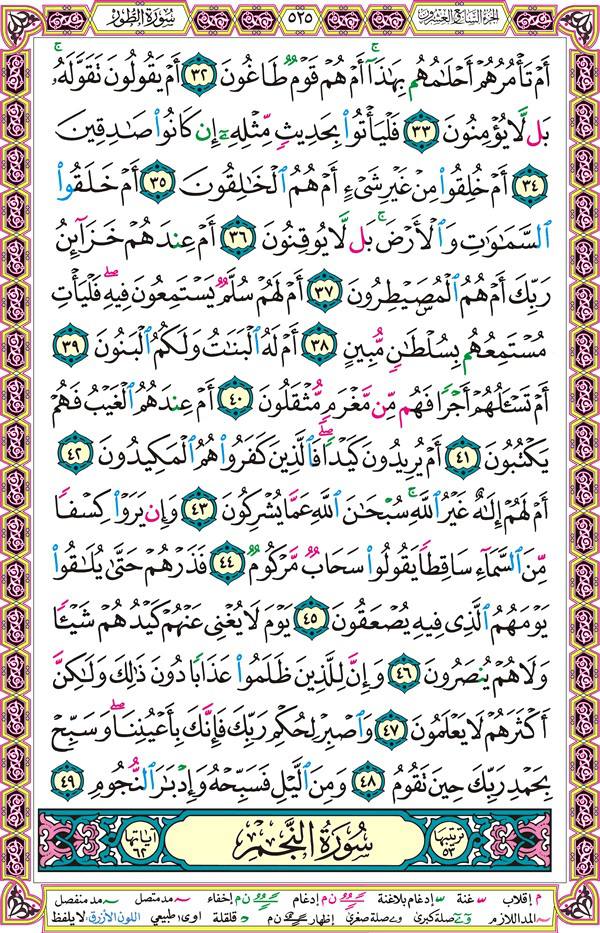 سُورَةُ الطُّورِ ٥٢٥ الجزء السابع والعشرون
أَمْ تَأْمُرُهُمْ أَحْلَامُهُم بِهَٰذَآ ۚ أَمْ هُمْ قَوْمٌ طَاغُونَ ٣٢ أَمْ يَقُولُونَ تَقَوَّلَهُۥ ۚ
بَل لَّا يُؤْمِنُونَ ٣٣ فَلْيَأْتُوا۟ بِحَدِيثٍ مِّثْلِهِۦٓ إِن كَانُوا۟ صَٰدِقِينَ
٣٤ أَمْ خُلِقُوا۟ مِنْ غَيْرِ شَىْءٍ أَمْ هُمُ ٱلْخَٰلِقُونَ ٣٥ أَمْ خَلَقُوا۟
ٱلسَّمَٰوَٰتِ وَٱلْأَرْضَ ۚ بَل لَّا يُوقِنُونَ ٣٦ أَمْ عِندَهُمْ خَزَآئِنُ
رَبِّكَ أَمْ هُمُ ٱلْمُصَۣيْطِرُونَ ٣٧ أَمْ لَهُمْ سُلَّمٌ يَسْتَمِعُونَ فِيهِ ۖ فَلْيَأْتِ
مُسْتَمِعُهُم بِسُلْطَٰنٍ مُّبِينٍ ٣٨ أَمْ لَهُ ٱلْبَنَٰتُ وَلَكُمُ ٱلْبَنُونَ ٣٩
أَمْ تَسْـَٔلُهُمْ أَجْرًا فَهُم مِّن مَّغْرَمٍ مُّثْقَلُونَ ٤٠ أَمْ عِندَهُمُ ٱلْغَيْبُ فَهُمْ
يَكْتُبُونَ ٤١ أَمْ يُرِيدُونَ كَيْدًا ۖ فَٱلَّذِينَ كَفَرُوا۟ هُمُ ٱلْمَكِيدُونَ ٤٢
أَمْ لَهُمْ إِلَٰهٌ غَيْرُ ٱللَّهِ ۚ سُبْحَٰنَ ٱللَّهِ عَمَّا يُشْرِكُونَ ٤٣ وَإِن يَرَوْا۟ كِسْفًا
مِّنَ ٱلسَّمَآءِ سَاقِطًا يَقُولُوا۟ سَحَابٌ مَّرْكُومٌ ٤٤ فَذَرْهُمْ حَتَّىٰ يُلَٰقُوا۟
يَوْمَهُمُ ٱلَّذِى فِيهِ يُصْعَقُونَ ٤٥ يَوْمَ لَا يُغْنِى عَنْهُمْ كَيْدُهُمْ شَيْـًٔا
وَلَا هُمْ يُنصَرُونَ ٤٦ وَإِنَّ لِلَّذِينَ ظَلَمُوا۟ عَذَابًا دُونَ ذَٰلِكَ وَلَٰكِنَّ
أَكْثَرَهُمْ لَا يَعْلَمُونَ ٤٧ وَٱصْبِرْ لِحُكْمِ رَبِّكَ فَإِنَّكَ بِأَعْيُنِنَا ۖ وَسَبِّحْ
بِحَمْدِ رَبِّكَ حِينَ تَقُومُ ٤٨ وَمِنَ ٱلَّيْلِ فَسَبِّحْهُ وَإِدْبَٰرَ ٱلنُّجُومِ ٤٩
ترتيبها ٥٣ سُورَةُ النَّجْمِ آياتها ٦٢
م إقلاب غنة إدغام بلاغنة ن م إدغام ن م إخفاء مد متصل مد منفصل
المد اللازم صلة كبرى صلة صغرى إظهار ن م قلقلة اوى: طبيعي اللون الأزرق: لا يلفظ